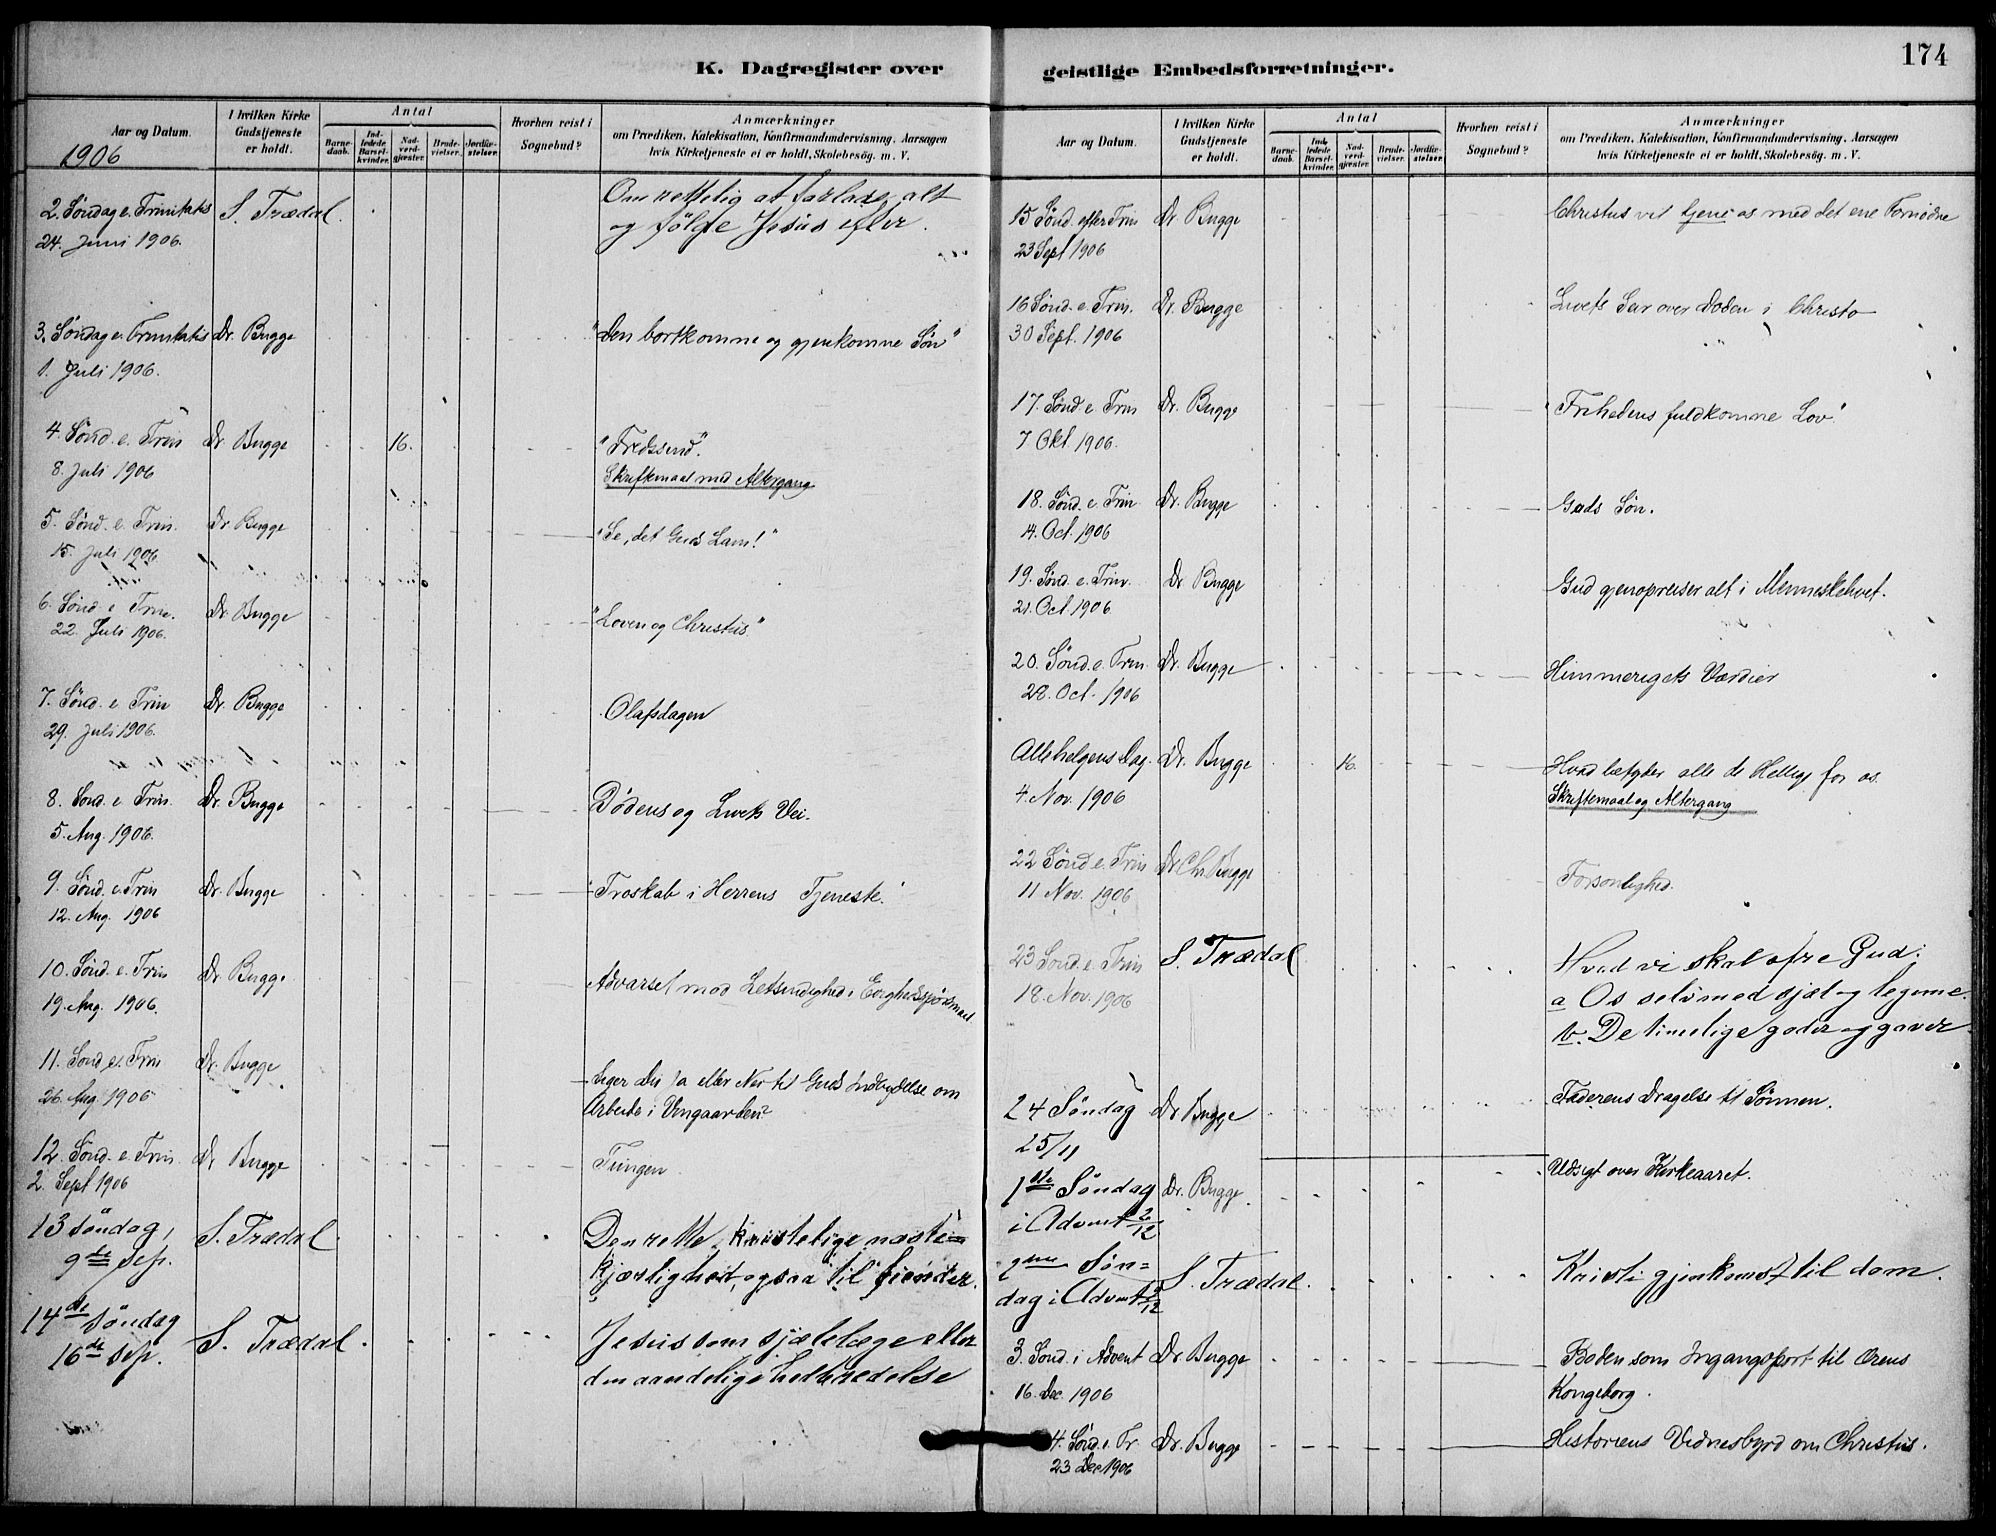 K. Dagregister over
Aar og Datum.
I hvilken Kirke
Gudstjeneste
er holdt.
Antal
Barne-
daab.
Ind-
ledede
Barsel-
kvinder.
Nad-
verd-
gjæster.
Brude-
vielser.
Jordfæ-
stelser.
Hvorhen reist i
Sognebud?
Anmærkninger
om Prædiken, Katekisation, Konfirmandundervisning, Aarsagen
hvis Kirketjeneste ei er holdt, Skolebesøg. m. V.
1906
2. Søndag e. Trinitatis S. Trædal. Om rettelig at forlade alt
24. Juni 1906. og følge Jesus efter.
3. Søndag e. Trinitatis Dr. Bugge "Den bortkomne og gjenkomne Søn"
1. Juli 1906.
4. Sønd. e. Trin Dr. Bugge 16. "Fredssind".
8. Juli 1906 Skriftemaal med Altergang
5. Sønd. e. Trin. Dr Bugge "Se, det Guds Lam!"
15. Juli 1906
6. Sønd e Trin. Dr. Bugge "Loven og Christus"
22. Juli 1906.
7. Sønd. e Trin Dr. Bugge Olafsdagen
29. Juli 1906.
8. Sønd. e. Trin. Dr. Bugge Dødens og Livets Vei.
5. Aug. 1906.
9. Sønd. e. Trin Dr. Bugge "Troskab i Herrens Tjeneste."
12. Aug. 1906
10. Sønd. e. Trin Dr. Bugge Advarsel mod Letsindighed i Evighedsspørsmaal.
19. Aug. 1906.
11. Sønd. e. Trin Dr. Bugge Siger Du Ja eller Nei til Guds Indbydelse om
26. Aug 1906 Arbeide i Vingaarden?
12. Sønd. e. Trin. Dr Bugge Tungen
2. Sept 1906
13 søndag, S. Trædal Den rette, kristelige næste=
9de sep. kjærlighed, ogsaa til fiender.
14de søndag S. Trædal. Jesus som sjælelæge eller
16de sep. den aandelige helbredelse
geistlige Embedsforretninger.
174
Aar og Datum.
I hvilken Kirke
Gudstjeneste
er holdt.
Antal
Barne-
daab.
Ind-
ledede
Barsel-
kvinder.
Nad-
verd-
gjæster.
Brude-
vielser.
Jordfæ-
stelser.
Hvorhen reist i
Sognebud?
Anmærkninger
om Prædiken, Katekisation, Konfirmandundervisning, Aarsagen
hvis Kirketjeneste ei er holdt, Skolebesøg. m. V.
15 Sønd. efter Trin Dr. Bugge Christus vil tjene os med det ene Fornødne
23 Sept 1906
16 Sønd. e. Trin. Dr. Bugge Livets Seir over Døden i Christo
30 Sept. 1906
17. Sønd e. Trin Dr. Bugge "Frihedens fuldkomne Lov"
7 Okt. 1906.
18. Sønd. e. Trin Dr. Bugge Guds Søn.
14. Oct. 1906
19. Sønd. e. Trin. Dr. Bugge Gud gjenopreiser alt i Menneskelivet.
21. Oct. 1906
20. Sønd. e. Trin. Dr. Bugge Himmerigets Værdier
28. Oct. 1906
Allehelgens Dag. Dr. Bugge 16. Hvad betyder alle de Hellige for os.
4. Nov. 1906 Skriftemaal og Altergang
22 Sønd e. Trin Dr Chr. Bugge Forsonlighed.
11 Nov. 1906
23 Sønd. e. Trin S. Trædal Hvad vi skal ofre Gud:
18. Nov. 1906 a Os selv med sjæl og legeme.
b. De timelige goder og gaver
24 Søndag Dr Bugge Faderens Dragelse til Sønnen.
25/11
1ste Søndag Dr. Bugge. Udsigt over Kirkeaaret.
i Advent 2/12
2den Søn= S. Trædal. Kristi gjenkomst til dom.
dag i Advent 9/12
3. Sønd. i Advent Dr. Bugge Boden som Ingangsport til Ærens
16. Dec. 1906 Kongeborg.
4. Sønd. i Dr. Bugge Historiens Vidnesbyrd om Christus.
23 Dec 1906